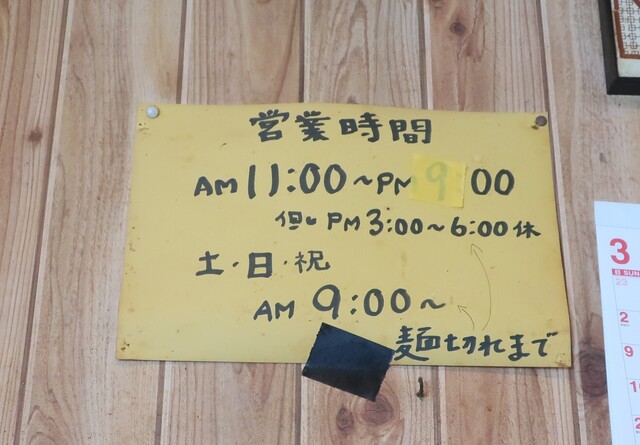 営業時間
AM 11:00～PM 9 00
但し PM 3:00～6:00 休
土・日・祝
AM 9:00～
麺切れまで
3
日 SUN
23
2
9